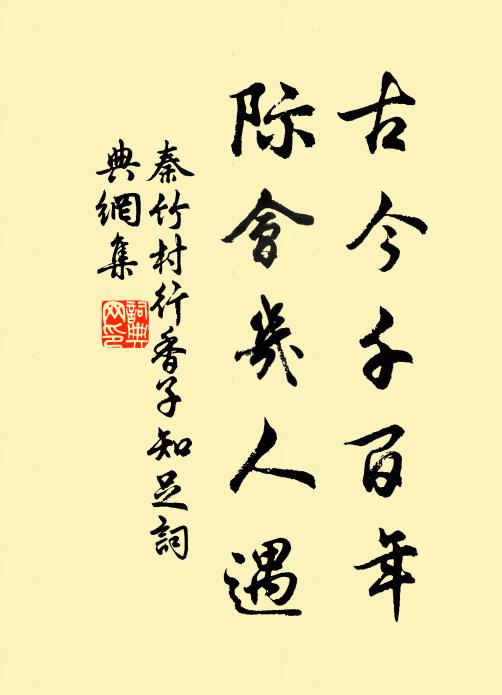 古今千百年
际會幾人遇
秦竹村行香子知足詞
典網集
詞典網印